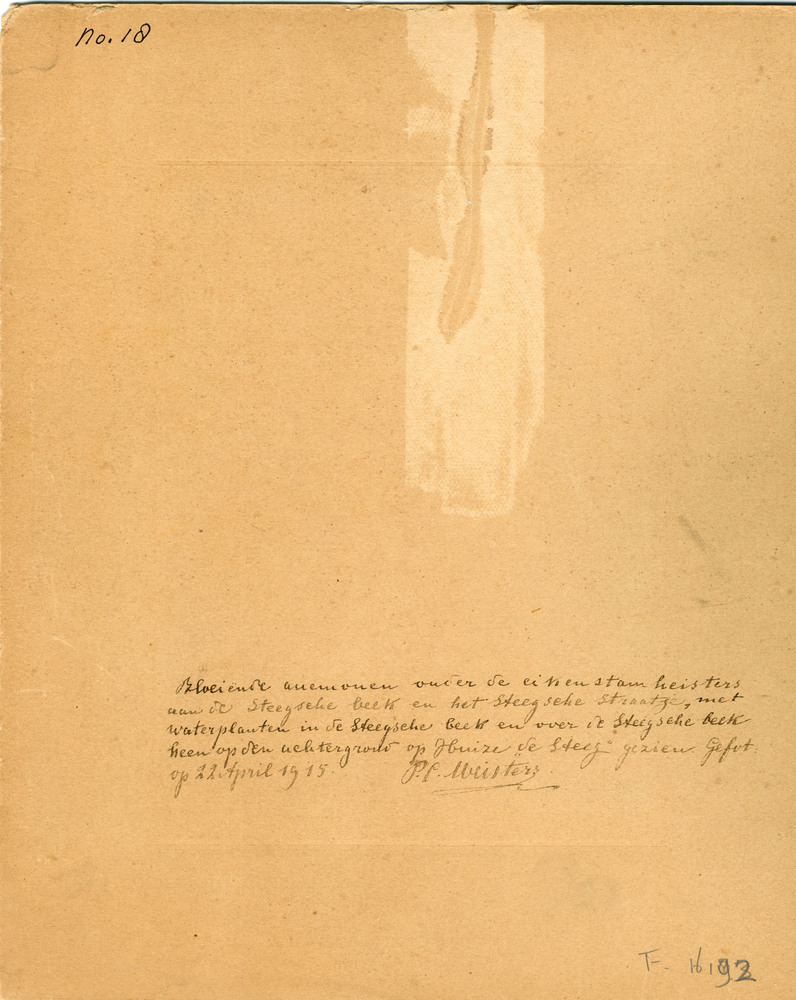 No. 18
Bloeiende anemonen onder de eikenstam heisters
aan de Steegsche beek en het Steegsche Straatje, met
waterplanten in de Steegsche beek en over de Steegsche beek
heen op den achtergrond op Huize de Steeg gezien. Gefot:
op 22 April 1915. P.C. Meisters
F-